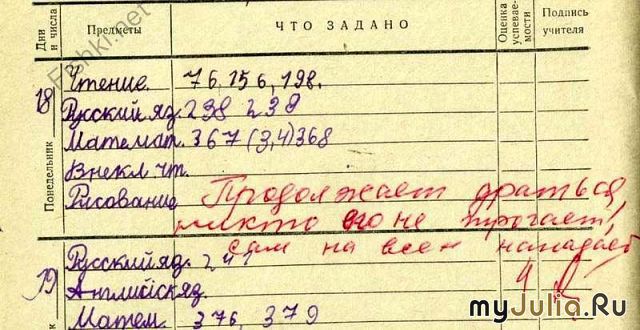 Дни и числа Предметы ЧТО ЗАДАНО Оценка успевае- мости Подпись учителя
Fishki.net
Понедельник
18
Чтение. 76, 156, 198.
Русский яз. 238 239
Математ. 367 (3,4) 368
Внекл. чт.
Рисование
Продолжает драться,
никто его не трогает!
сам на всех нападает
19
Русский яз. 241
Английск яз. 4
Матем. 376, 379
myJulia.Ru